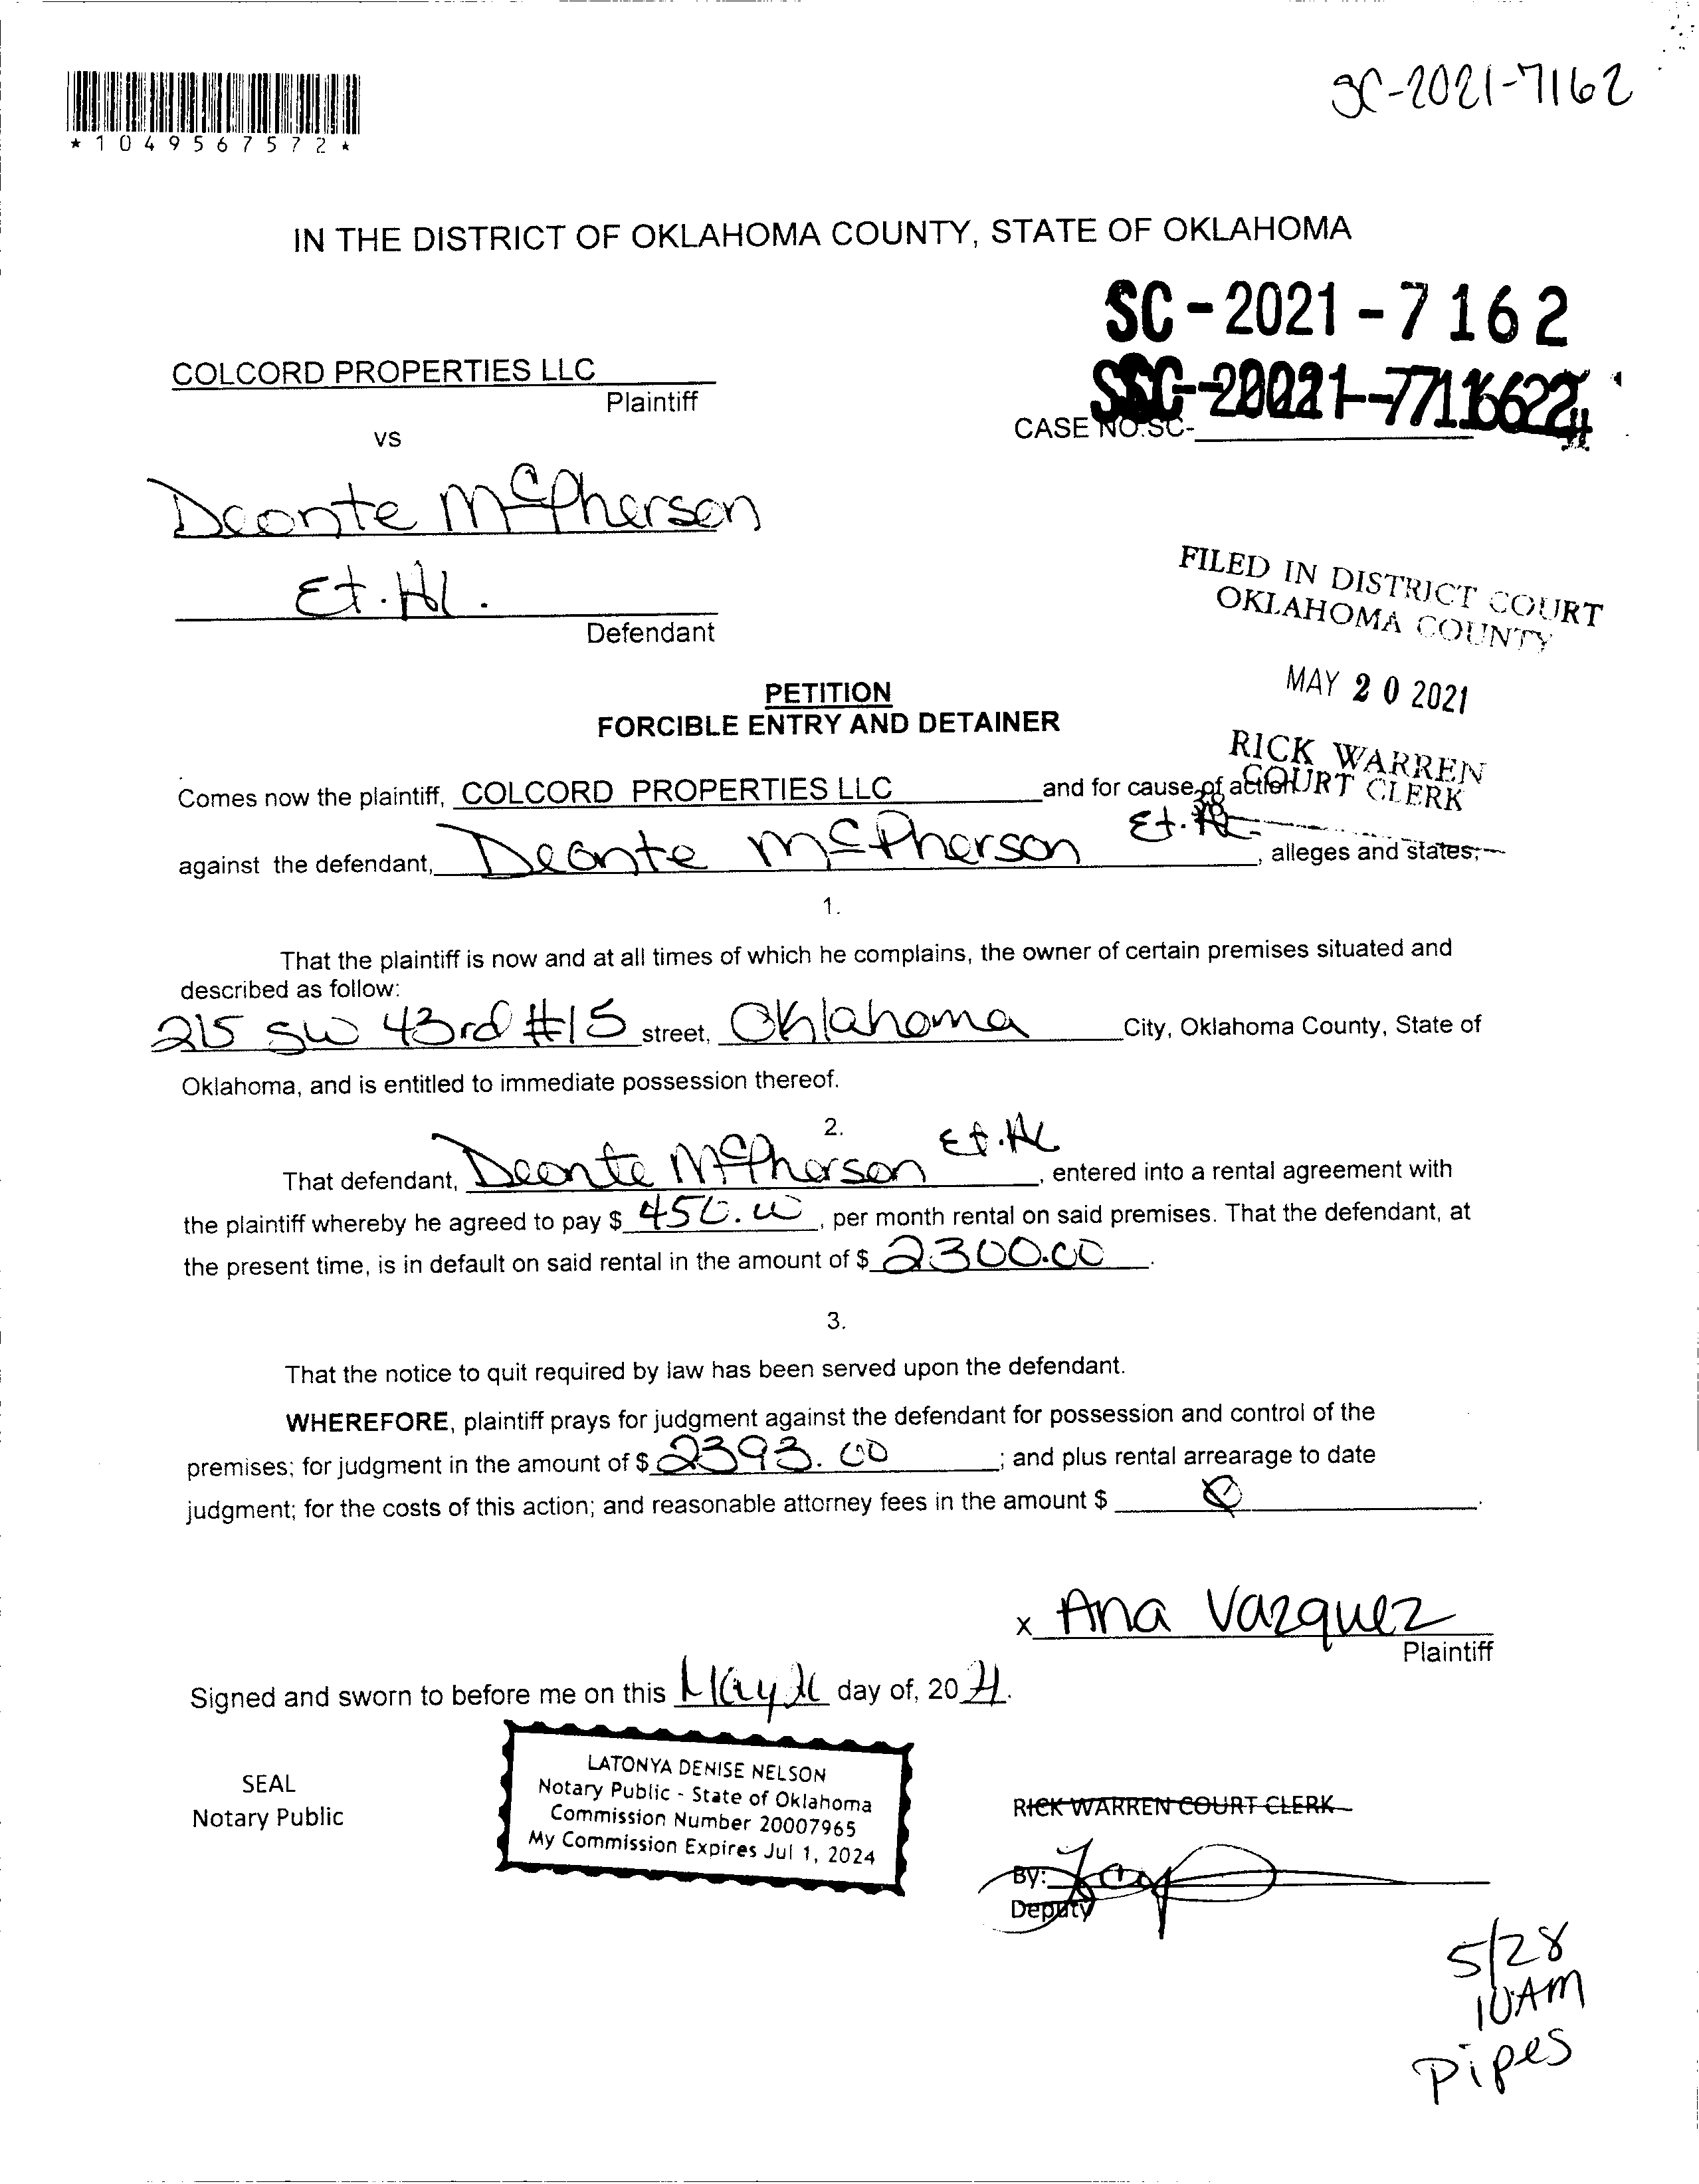 SC-2021-7162
*1049567572*
IN THE DISTRICT OF OKLAHOMA COUNTY, STATE OF OKLAHOMA
SC-2021-7162
COLCORD PROPERTIES LLC
Plaintiff
CASE NO.SC-
vs
Deonte McPherson
Et. Al.
Defendant
FILED IN DISTRICT COURT
OKLAHOMA COUNTY
MAY 20 2021
RICK WARREN
COURT CLERK
PETITION
FORCIBLE ENTRY AND DETAINER
Comes now the plaintiff, COLCORD PROPERTIES LLC and for cause of action
against the defendant, Deonte McPherson Et. Al, alleges and states;
1.
That the plaintiff is now and at all times of which he complains, the owner of certain premises situated and
described as follow:
215 SW 43rd #15 street, Oklahoma City, Oklahoma County, State of
Oklahoma, and is entitled to immediate possession thereof.
2.
That defendant, Deonte McPherson Et. Al, entered into a rental agreement with
the plaintiff whereby he agreed to pay $ 450.00, per month rental on said premises. That the defendant, at
the present time, is in default on said rental in the amount of $ 2300.00.
3.
That the notice to quit required by law has been served upon the defendant.
WHEREFORE, plaintiff prays for judgment against the defendant for possession and control of the
premises; for judgment in the amount of $ 2393.00; and plus rental arrearage to date
judgment; for the costs of this action; and reasonable attorney fees in the amount $
x Ana Vazquez
Plaintiff
Signed and sworn to before me on this May day of, 2021.
SEAL
Notary Public
LATONYA DENISE NELSON
Notary Public - State of Oklahoma
Commission Number 20007965
My Commission Expires Jul 1, 2024
RICK WARREN COURT CLERK
By:
Deputy
5/28
10AM
Pipes